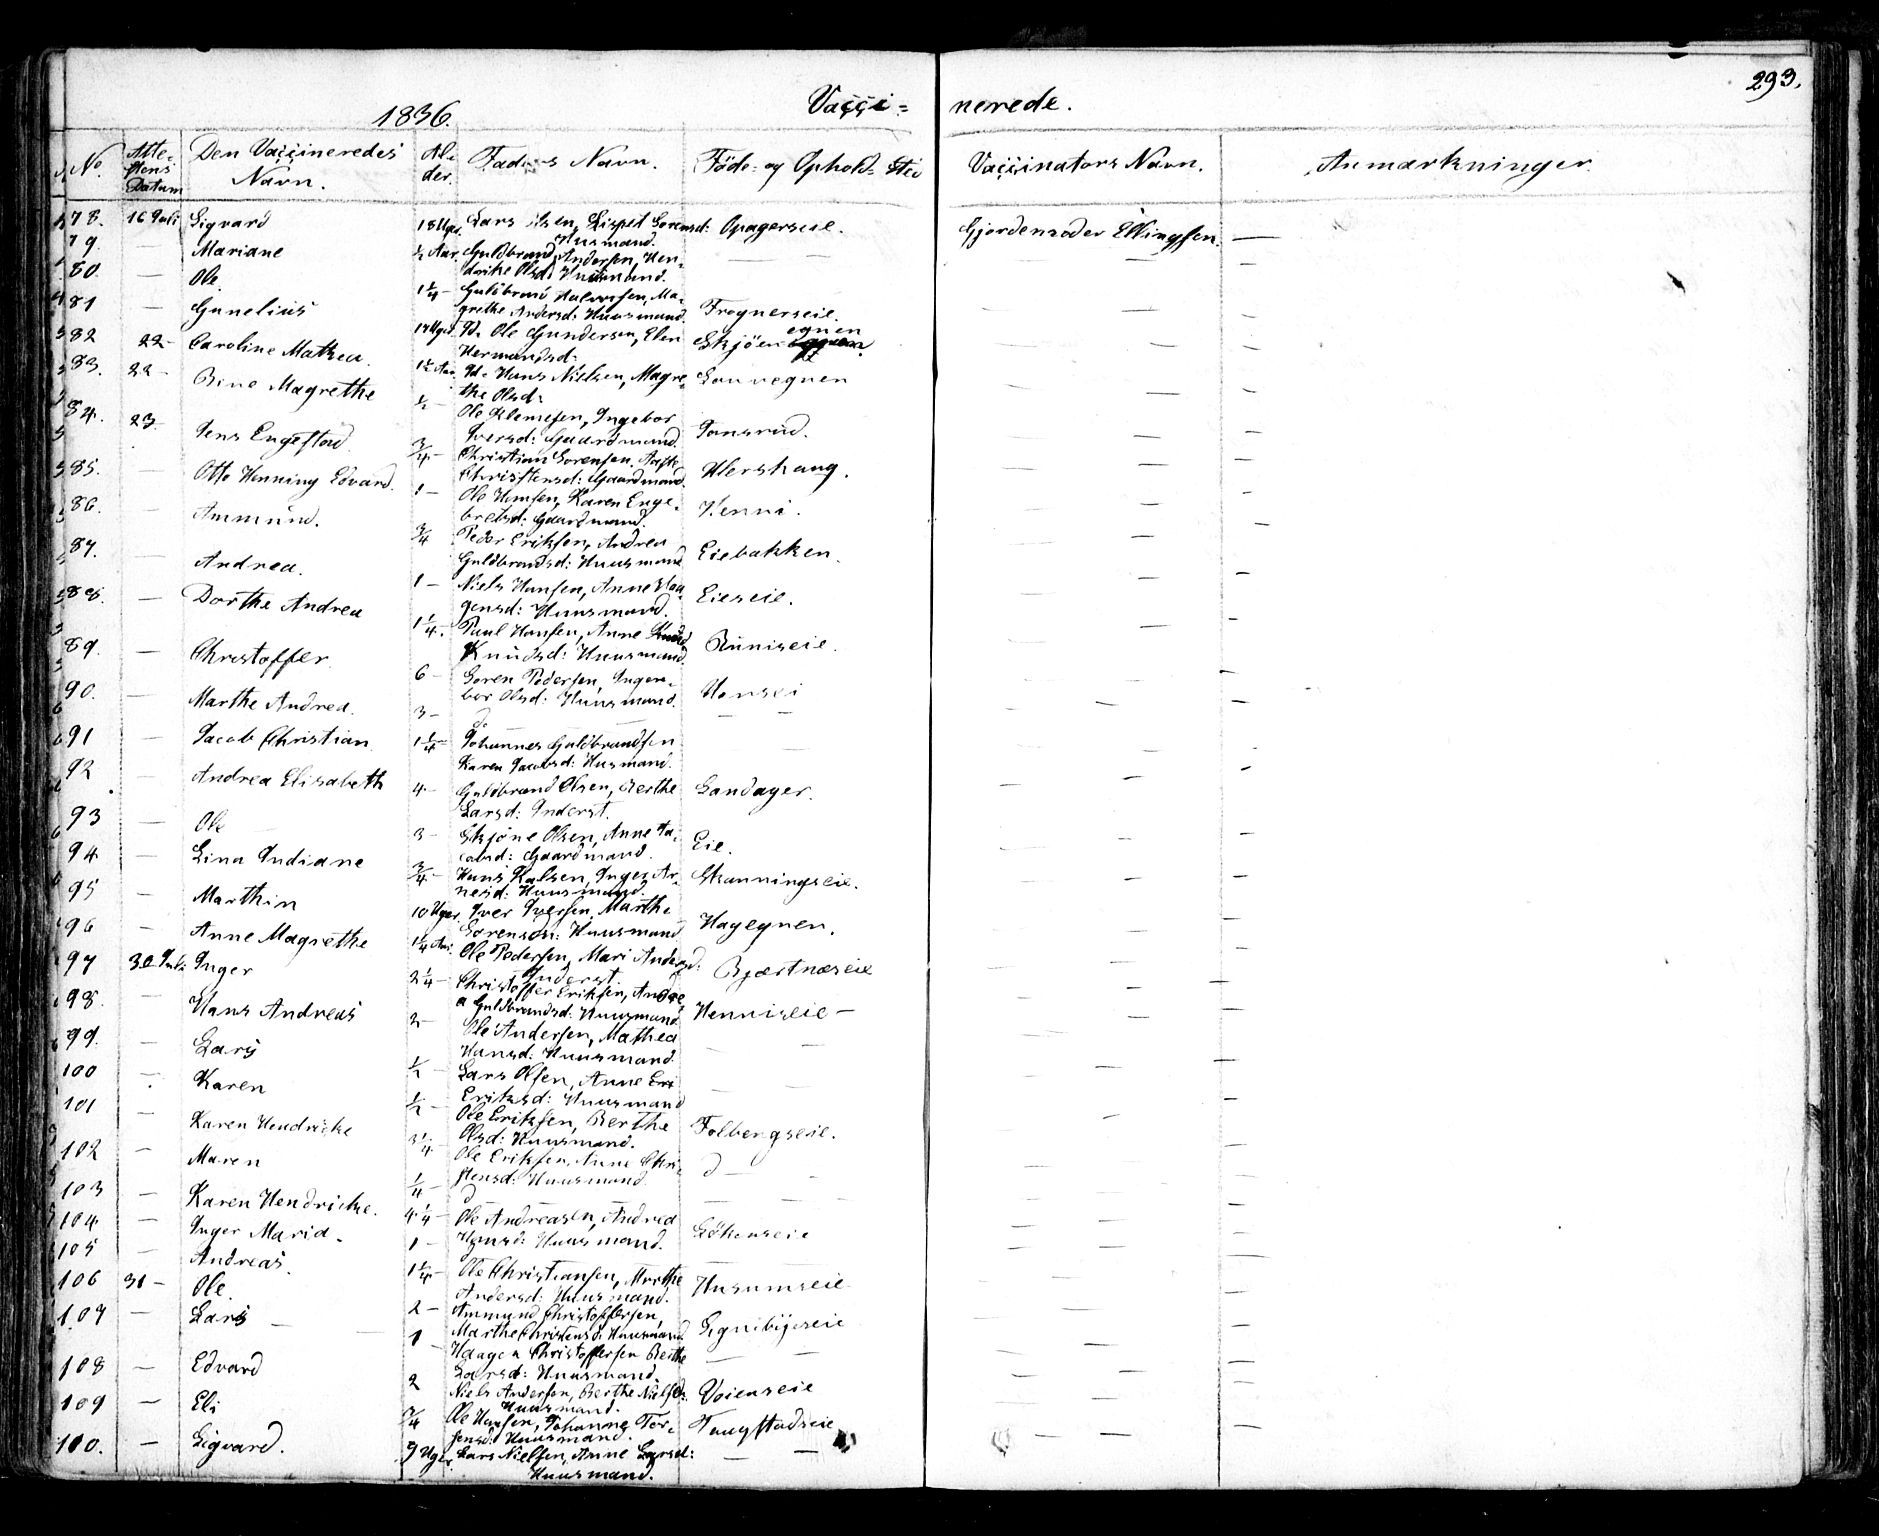 293.
1836. Vacci= nerede.
No. Attestens Datum Den Vaccineredes Navn. Alder. Faders Navn. Føde- og Ophold- Sted Vaccinators Navn. Anmærkninger.
78. 16 Juli Sigvard 18 Uger. Lars Olsen, Lispet Sorensd: Huusmand. Opagerseie. Gjordemoder Ellingsen. —
79. Mariane ½ Aar. Guldbrand Andersen, Hendrike Olsd: Huusmand. — —
80. — Ole. 1¼ — Guldbrand Halvorsen, Magrethe Andersd: Huusmand. Frognerseie. — —
81 — Gunelius 17 Uger. Ole Gundersen, Elen Hermandsd: Skjöen egnen — —
82 22 — Caroline Mathea. Hans Nielsen, Magrethe Olsd: — —
83. 22 — Bine Magrethe ½ — Ole Klemesen, Ingebor Iversd: Gaardmand. — —
84. 23. Jens Engestad ¾ — Christian Sorensen, Christensd: Gaardmand. — —
85. — Otto Henning Edvard. 1 — Ole Hansen, Karen Engebretsd: Gaardmand. Henni. — —
86. — Ammund. ¾ Peder Eriksen, Andrea Guldbrandsd: Huusmand Eiebakken. — —
87. — Andrea. 1 — Niels Hansen, Anne Haagensd: Huusmand. Eieseie. — —
88. — Dorthe Andrea 1¼. Paul Hansen, Anne Knudsd: Huusmand. Runiseie. — —
89. — Christoffer. 6 — Soren Pedersen, Ingerbor Olsd: Huusmand. — —
90. — Marthe Andrea. 3 — do — — — —
91 — Jacob Christian 1¼ — Johannes Guldbrandsen Karen Jacobsd: Husmand. — — —
92 — Andrea Elisabeth 4 — Guldbrand Olsen, Berthe Larsd: Inderst. Sandager. — —
93 — Ole 3 — Skjöne Olsen, Anne Jacobsd: Gaardmand. Eie. — —
94 — Lina Indiane ¾ — Hans Kalsen, Inger Arnesd: Huusmand. Skanningseie. — —
95 — Marthin 10 Uger. Iver Iversen, Marthe Sorensdn: Huusmand Hagegnen. — —
96 — Anne Magrethe 1¼ Aar. Ole Pedersen, Mari Andersd: Inderst Bjærtnæseie — —
97 30 Juli Inger 2¼ — Christoffer Eriksen, Andrea Guldbrandsd: Huusmand Henniseie — — —
98. — Hans Andreas 2 — Ole Andersen, Mathea Hansd: Huusmand. — — — —
99. — Lars ½ — Lars Olsen, Anne Eri Eriksd: Huusmand — — — —
100 — Karen ½ — Ole Eriksen, Berthe Olsd: Huusmand. Folbergseie. — —
101 — Karen Hendricke 3¼ Ole Eriksen, Anne Christensd: Huusmand. d — — — —
102 — Maren ¼ — d — — — — —
103 — Karen Hendricke. 4¼ — Ole Andreasen, Andrea Hansd: Huusmand. — —
104 — Inger Maria. 1 — Ole Christiansen, Marthe Andersd: Huusmand. Husumseie — —
105 — Andreas. 1¼ — Ammund Christoffersen, Marthe Christensd: Huusmand — —
106 31 — Ole. 2 — Haagen Christoffersen Berthe Larsd: Huusmand. — — — —
107 — Lars — — 1 — Niels Andersen, Berthe Nielsd: Huusmand. Voienseie — —
108 — Edvard 2 Ole Hansen, Johanne Torstensd: Huusmand. Taugstadseie — —
109 — Eli ¾ — —
110. — Sigvard. 9 Uger Lars Nielsen, Anne Larsd: Huusmand. — — — —